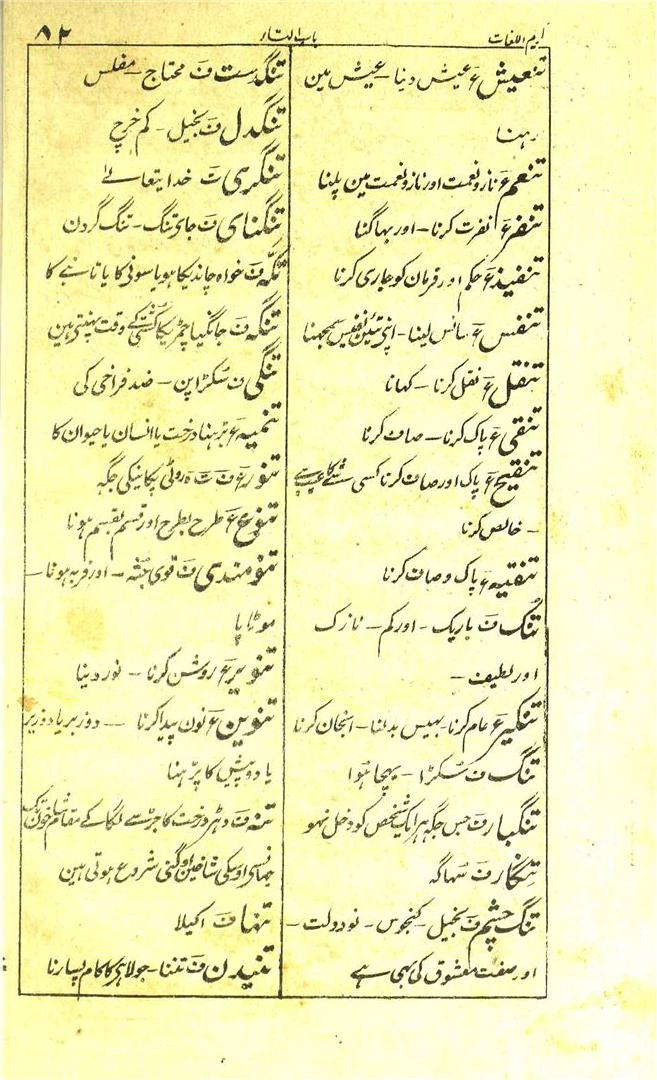 کریم اللغات
باب التاء
۸۲
تنعیش ع عیش دنیا۔ عیش مین
رہنا
تنعم ع نازونعمت اور نازونعمت مین پلنا
تنفر ع نفرت کرنا۔ اور بھاگنا
تنفیذ ع حکم اور فرمان کو جاری کرنا
تنفس ع سانس لینا۔ اپنی تئین نفیس سمجھنا
تنقل ع نقل کرنا۔ کہانا
تنقی ع پاک کرنا۔ صاف کرنا
تنقیح ع پاک اور صاف کرنا کسی شے کا عیب سے
۔ خالص کرنا
تنقیہ ع پاک وصاف کرنا
تنک ف باریک۔ اور کم۔ نازک
اور لطیف۔
تنکیر ع عام کرنا۔ بھیس بدلنا۔ انجان کرنا
تنگ ف سکڑا۔ بھچا ہوا
تنگبار ف جس جگہ ہر ایک شخص کو دخل نہو
تنکار ف سہاگہ
تنگ چشم ف بخیل۔ کنجوس۔ نودولت۔
اور صفت معشوق کی بھی ہے
تنگدست ف محتاج۔ مفلس
تنگدل ف بخیل۔ کم خرچ
تنگری ت خدایتعالےٰ
تنگنای ف جای تنگ۔ تنگ گردن
تنگہ ف خواہ چاندیکا ہو یا سونی کا یا تانبے کا
تنگہ ف جانگیا چمڑیکا کشتی کے وقت پہنتی ہین
تنگی ف سکڑاپن۔ ضد فراخی کی
تنمیہ ع بڑہنا درخت یا انسان یا حیوان کا
تنور ع ف ت ہ روٹی پکانیکی جگہ
تنوع ع طرح بطرح اور قسم بقسم ہونا
تنومندی ف قوی جثہ۔ اور فربہ ہونا۔
موڑاپا
تنویر ع روشن کرنا۔ نور دینا
تنوین ع نون پیدا کرنا۔ دو زبر یا دو زیر
یا دو پیش کا پڑہنا
تنہ ف دھڑ درخت کا جڑ سے لگا کے مقام شاخون تک
جہانسی اوسکی شاخین اوگنی شروع ہوتی ہین
تنہا ف اکیلا
تنیدن ف تننا۔ جولاہی کا کام پسارنا